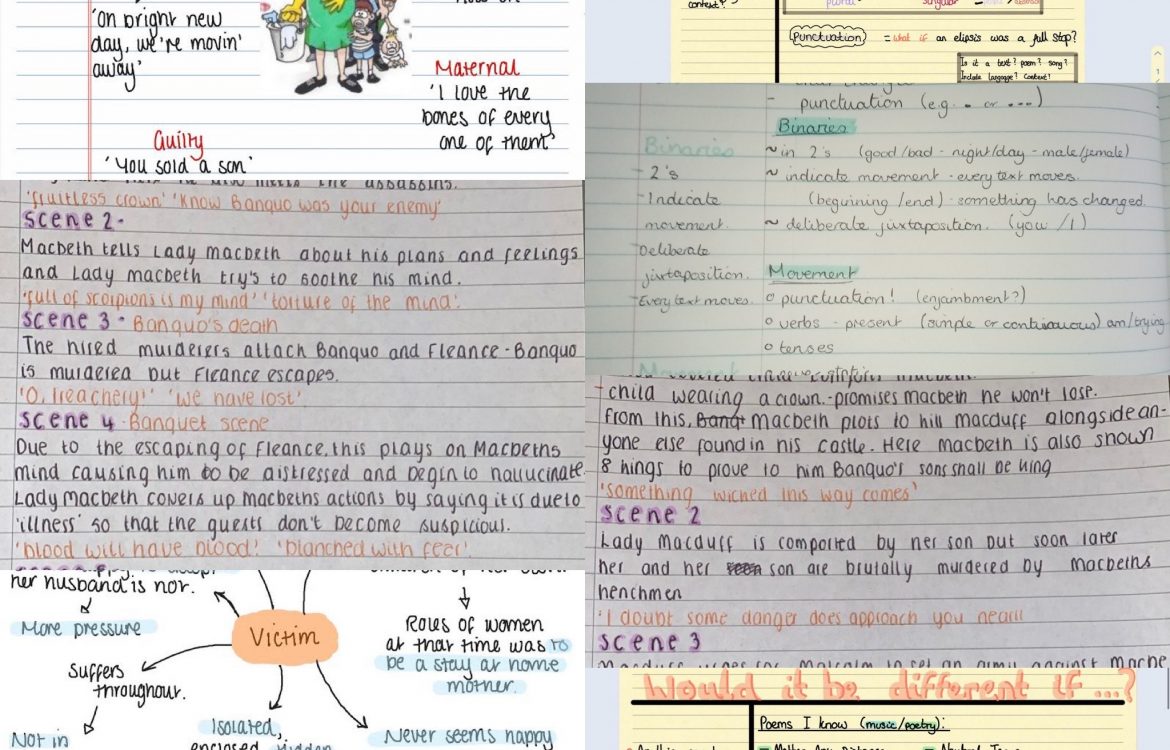 'On bright new
day, we're movin'
away'
Maternal
'I love the
bones of every
one of them'
Guilty
'You sold a son'
context?
plural
singular
Punctuation = what if an elipsis was a full stop?
Is it a text? poem? song?
Include language? Context?
- punctuation (e.g. . or ...)
Binaries
~ in 2's (good/bad - night/day - male/female)
~ indicate movement - every text moves.
(beguining /end) - something has changed.
~ deliberate juxtaposition. (you /I)
Movement
o punctuation! (enjambment?)
o verbs - present (simple or continuous) am/trying
o tenses
Binaries
- 2's
- Indicate
movement.
- Deliberate
juxtaposition.
- Every text moves.
Movement
the assassins.
'fruitless crown' 'know Banquo was your enemy'
Scene 2 -
Macbeth tells Lady macbeth about his plans and feelings
and Lady macbeth try's to soothe his mind.
'full of scorpions is my mind' 'torture of the mind'.
Scene 3 - Banquo's death
The hired murderers attach Banquo and Fleance - Banquo
is murdered but Fleance escapes.
'O, treachery!' 'we have lost'
Scene 4 - Banquet scene
Due to the escaping of Fleance, this plays on Macbeths
mind causing him to be distressed and begin to hallucinate.
Lady Macbeth covers up macbeths actions by saying it is due to
'illness' so that the guests don't become suspicious.
'blood will have blood'. 'blanched with fear'.
child wearing a crown.-promises macbeth he won't lose.
From this, macbeth plots to kill macduff alongside an-
yone else found in his castle. Here macbeth is also shown
8 kings to prove to him Banquo's sons shall be king
'something wicked this way comes'
Scene 2
Lady Macduff is comforted by her son but soon later
her and her son are brutally murdered by macbeths
henchmen
'I doubt some danger does approach you nearll
Scene 3
her husband is not.
More pressure
Victim
Suffers
throughout.
Not in
Isolated,
enclosed, hidden
Roles of women
at that time was to
be a stay at home
mother.
Never seems happy
Would it be different if ...?
Poems I know (music/poetry):